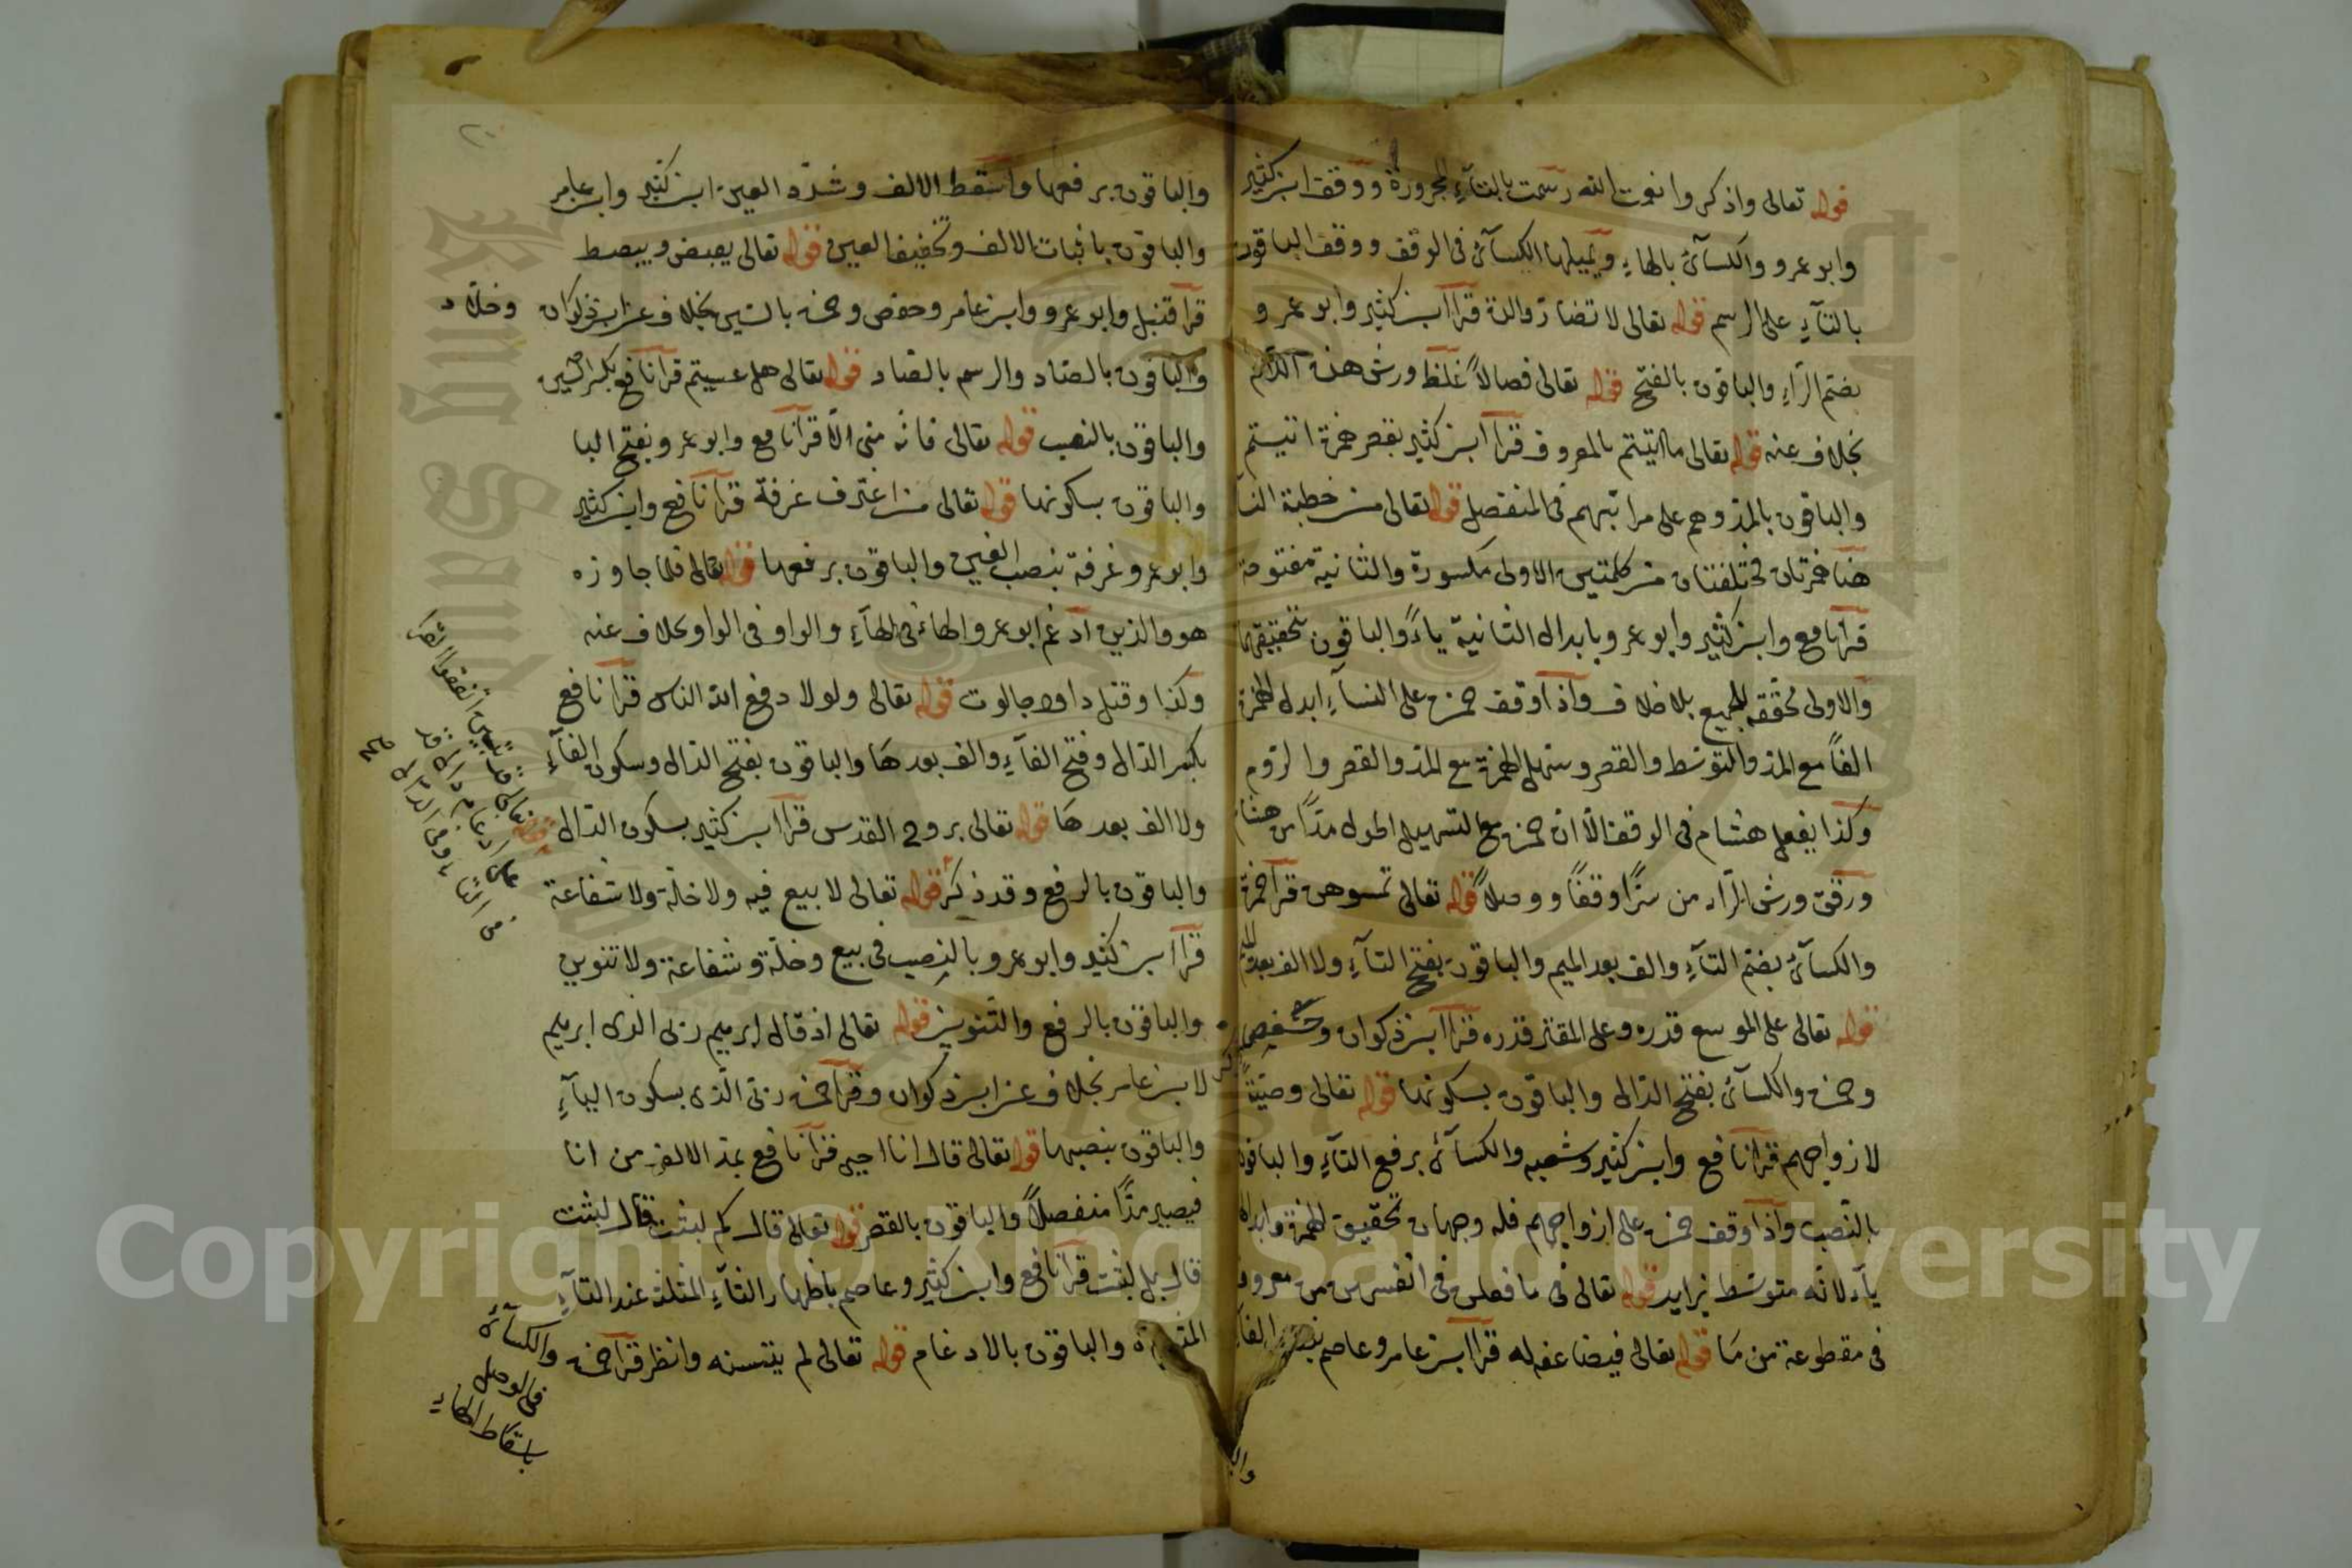 قوله تعالى واذكروا نعمت الله رسمت بالتآء المجرورة ووقف ابن كثير
وابو عمرو والكسآئ بالهاء ويميلها الكسآئ فى الوقف ووقف الباقون
بالتآء على الرسم قوله تعالى لا تضار والدة قرأ ابن كثير وابو عمرو
بضم الرآء والباقون بالفتح قوله تعالى فصالاً غلظ ورش هذه اللام
بخلاف عنه قوله تعالى ما اتيتم بالمعروف قرأ ابن كثير بقصر همزة اتيتم
والباقون بالمد وهم على مراتبهم فى المنفصل قوله تعالى من خطبة النسآ
هنا همزتان مختلفتان من كلمتين الاولى مكسورة والثانية مفتوحة
قرأ نافع وابن كثير وابو عمرو بابدال الثانية ياءً والباقون بتحقيقهما
والاولى محققة للجميع بلا خلاف واذا وقف حمزة على النسآء ابدل الهمزة
الفاً مع المد والتوسط والقصر وسهل الهمزة مع المد والقصر والروم
وكذا يفعل هشام فى الوقف الا ان حمزة مع التسهيل اطول مدّاً من هشام
ورقق ورش الرآء من سرّاً وقفاً ووصلاً قوله تعالى تمسوهن قرأ حمزة
والكسآئ بضم التآء والف بعد الميم والباقون بفتح التآء ولا الف بعد الميم
قوله تعالى على الموسع قدره وعلى المقتر قدره قرأ ابن ذكوان وحفص
وحمزة والكسآئ بفتح الدال والباقون بسكونها قوله تعالى وصيّةً
لازواجهم قرأ نافع وابن كثير وشعبه والكسآئ برفع التآء والباقون
بالنّصب واذا وقف حمزة على ازواجهم فله وجهان تحقيق الهمزة وابدالها
يآء لانّه متوسّط بزايد قوله تعالى فى ما فعلن فى انفسهن من معروف
فى مقطوعة من ما قوله تعالى فيضاعفه له قرأ ابن عامر وعاصم بنصب الفآء
والبا
والباقون برفعها واسقط الالف وشدّد العين ابن كثير وابن عامر
والباقون باثبات الالف وتخفيف العين قوله تعالى يقبض ويبصط
قرأ قنبل وابو عمرو وابن عامر وحفص وحمزة بالسّين بخلاف عن ابن ذكوان وخلّاد
والباقون بالصّاد والرسم بالصّاد قوله تعالى هل عسيتم قرأ نافع بكسر السّين
والباقون بالنصب قوله تعالى فانّه منى الاّ قرأ نافع وابو عمرو بفتح اليا
والباقون بسكونها قوله تعالى من اغترف غرفة قرأ نافع وابن كثير
وابو عمرو غرفة بنصب الغين والباقون برفعها قوله تعالى فلما جاوزه
هو والذين ادغم ابو عمرو الهاء فى الهآء والواو فى الواو بخلاف عنه
وكذا وقتل داود جالوت قوله تعالى ولولا دفع الله الناس قرأ نافع
بكسر الدال وفتح الفآء والف بعدها والباقون بفتح الدال وسكون الفآء
ولا الف بعدها قوله تعالى بروح القدس قرأ ابن كثير بسكون الدّال
والباقون بالرفع وقد ذكر قوله تعالى لا بيع فيه ولا خلّة ولا شفاعة
قرأ ابن كثير وابو عمرو بالنصب فى بيع وخلّة وشفاعة ولا تنوين
والباقون بالرفع والتّنوين قوله تعالى اذ قال ابرهيم ربى الذى ابرهيم
لابن عامر بخلاف عن ابن ذكوان وقرأ حمزة ربّى الّذى بسكون اليآء
والباقون بنصبها قوله تعالى قال انا احيى قرأ نافع بمد الالف من انا
فيصير مدّاً منفصلاً والباقون بالقصر قوله تعالى قال كم لبثت قال لبثت
قال بل لبثت قرأ نافع وابن كثير وعاصم باظهار الثآء المثلثة عند التآء
والباقون بالادغام قوله تعالى لم يتسنه وانظر قرأ حمزة والكسآئ
فى الوصل
باسقاط الهاء
قوله تعالى قد تبيّن اتفقوا
على ادغام دال قد
فى التا